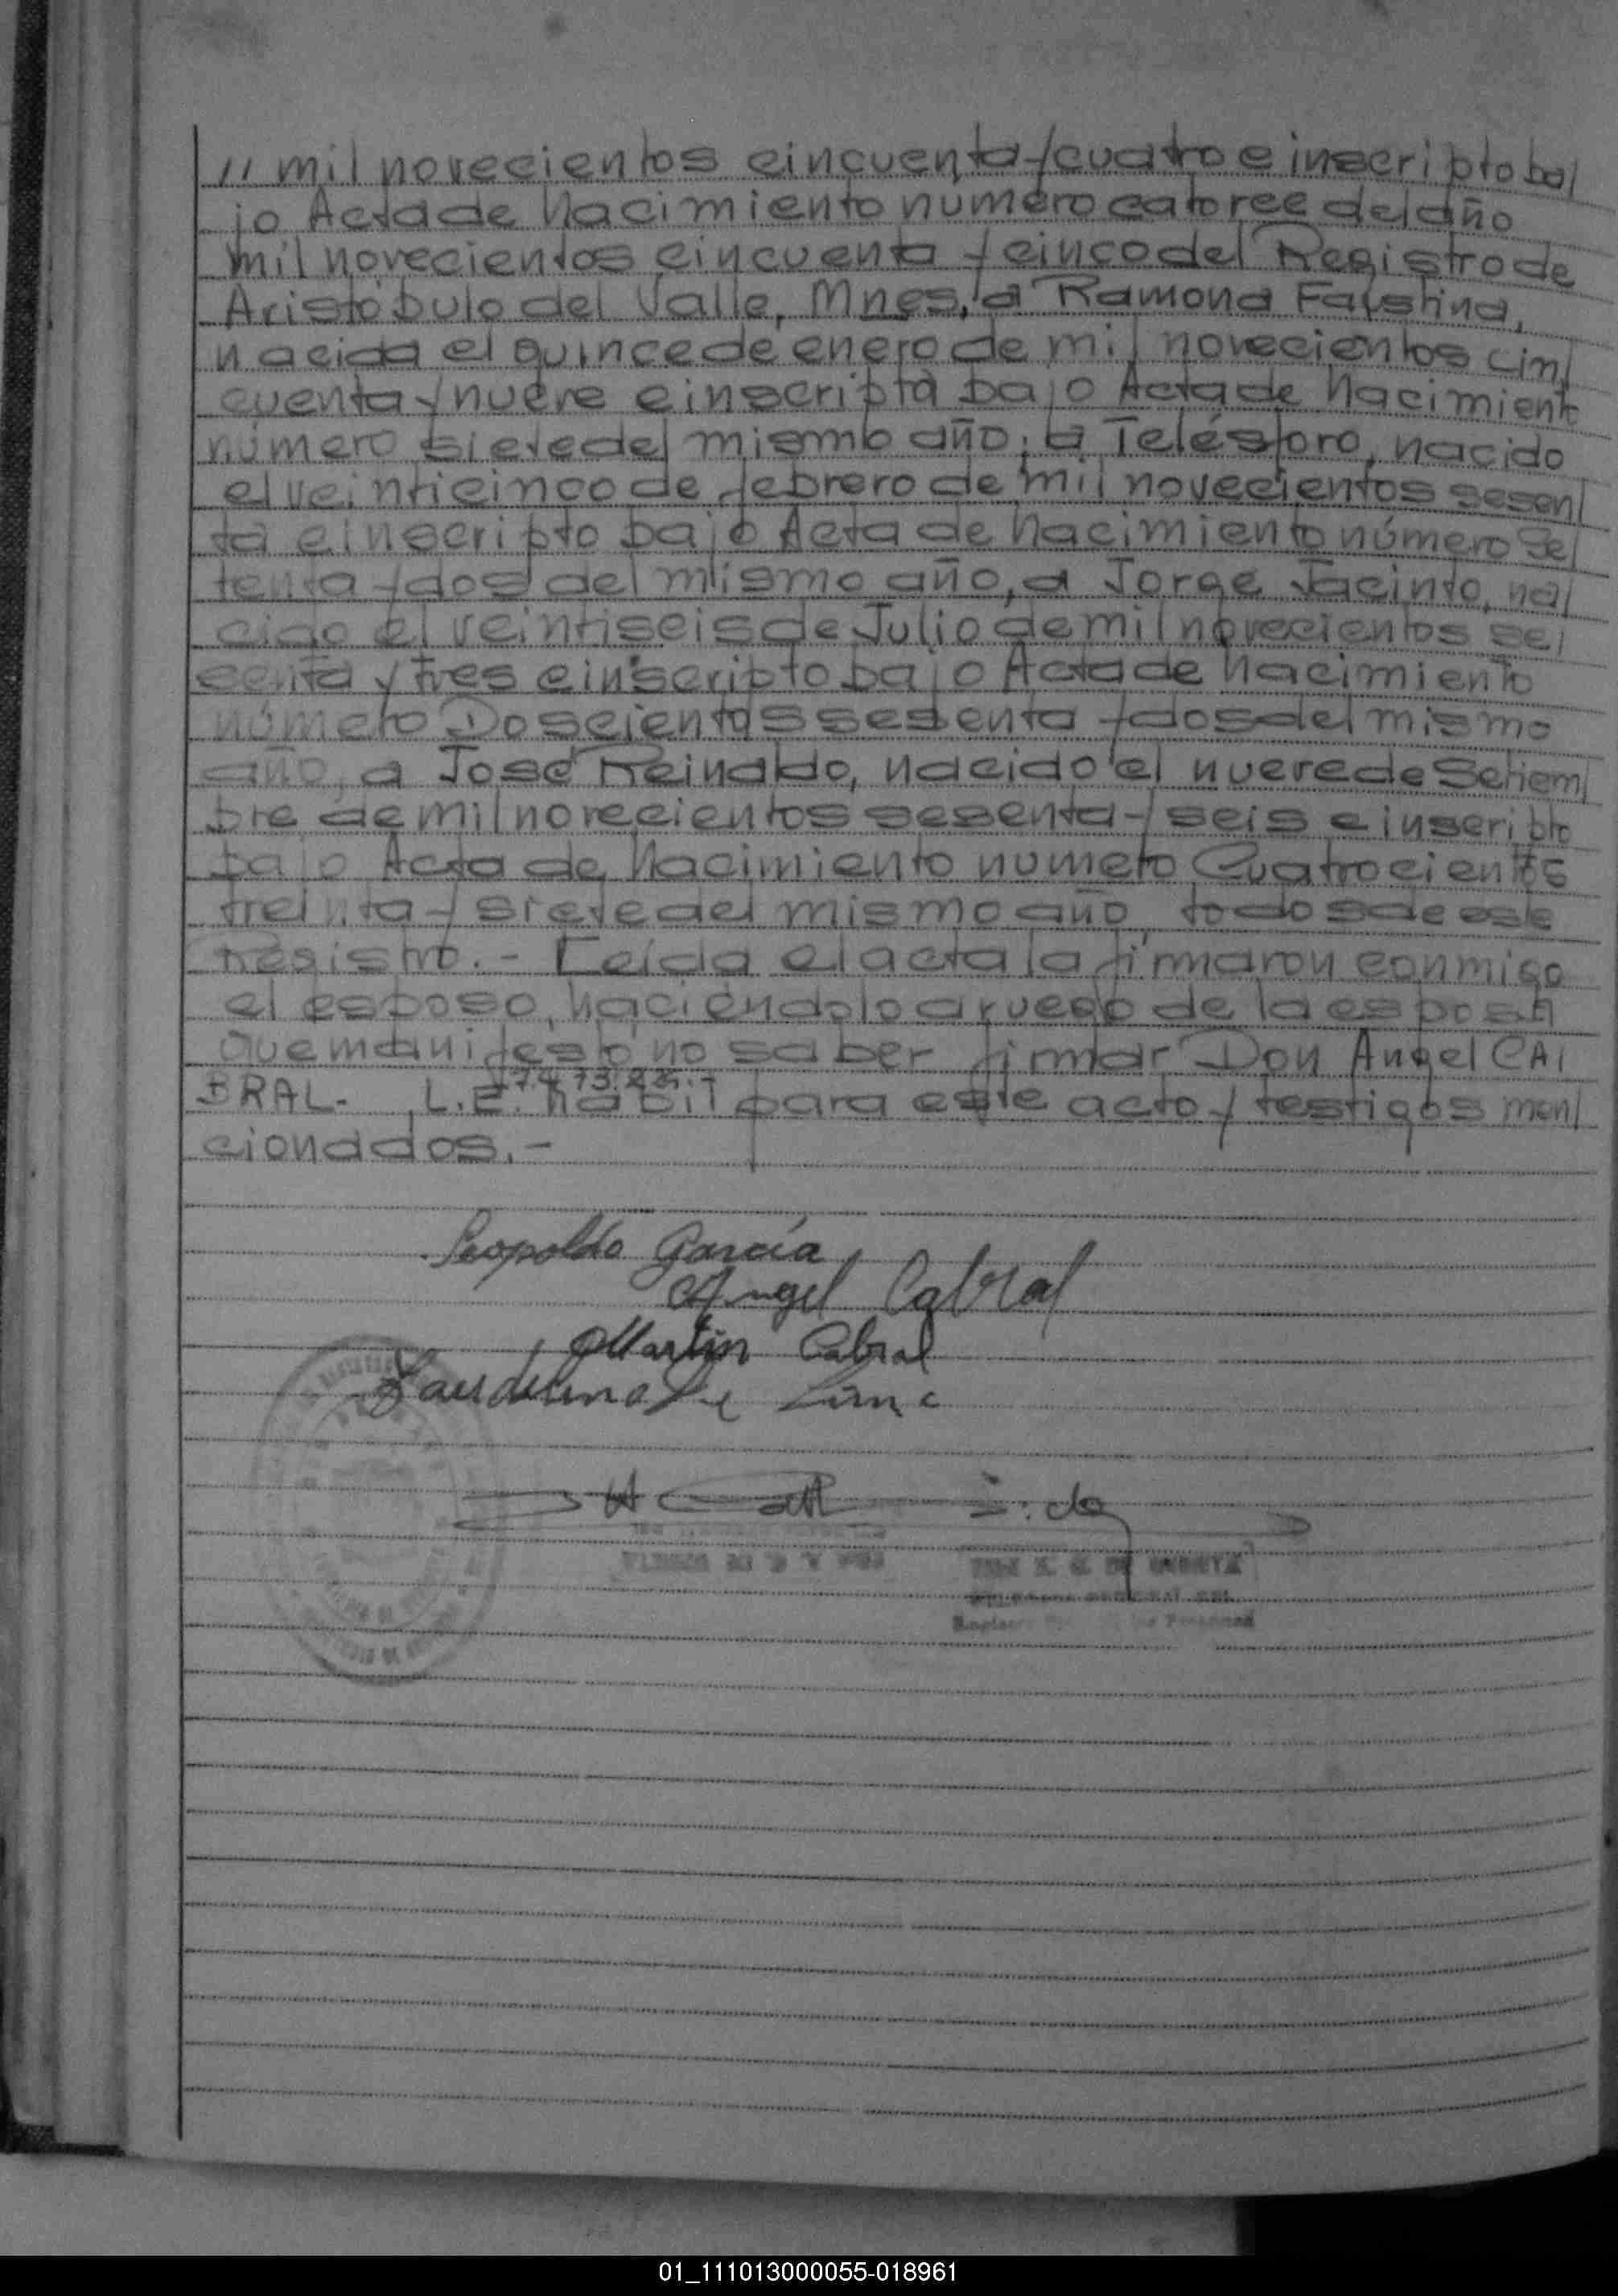 // mil novecientos cincuenta y cuatro e inscripto ba/
jo Acta de Nacimiento numero catorce del año
mil novecientos cincuenta y cinco del Registro de
Aristóbulo del Valle, Mnes, a Ramona Faustina,
nacida el quince de enero de mil novecientos cin/
cuenta y nueve e inscripta bajo Acta de Nacimiento
número siete del mismo año; a Telésforo, nacido
el veinticinco de febrero de mil novecientos sesen/
ta e inscripto bajo Acta de Nacimiento número Se/
tenta y dos del mismo año, a Jorge Jacinto, na/
cido el veintiseis de Julio de mil novecientos se/
centa y tres e inscripto bajo Acta de Nacimiento
número Doscientos sesenta y dos del mismo
año, a José Reinaldo, nacido el nueve de Setiem/
bre de mil novecientos sesenta y seis e inscripto
bajo Acta de Nacimiento numero Cuatrocientos
treinta y siete del mismo año, todos de este
Registro.- Leída el acta la firmaron conmigo
el esposo, haciéndolo a ruego de la esposa
que manifestó no saber firmar Don Angel CA/
BRAL. L.E. habil para este acto y testigos men/
cionados.-
Leopoldo García
Angel Cabral
Martin Cabral
01_111013000055-018961